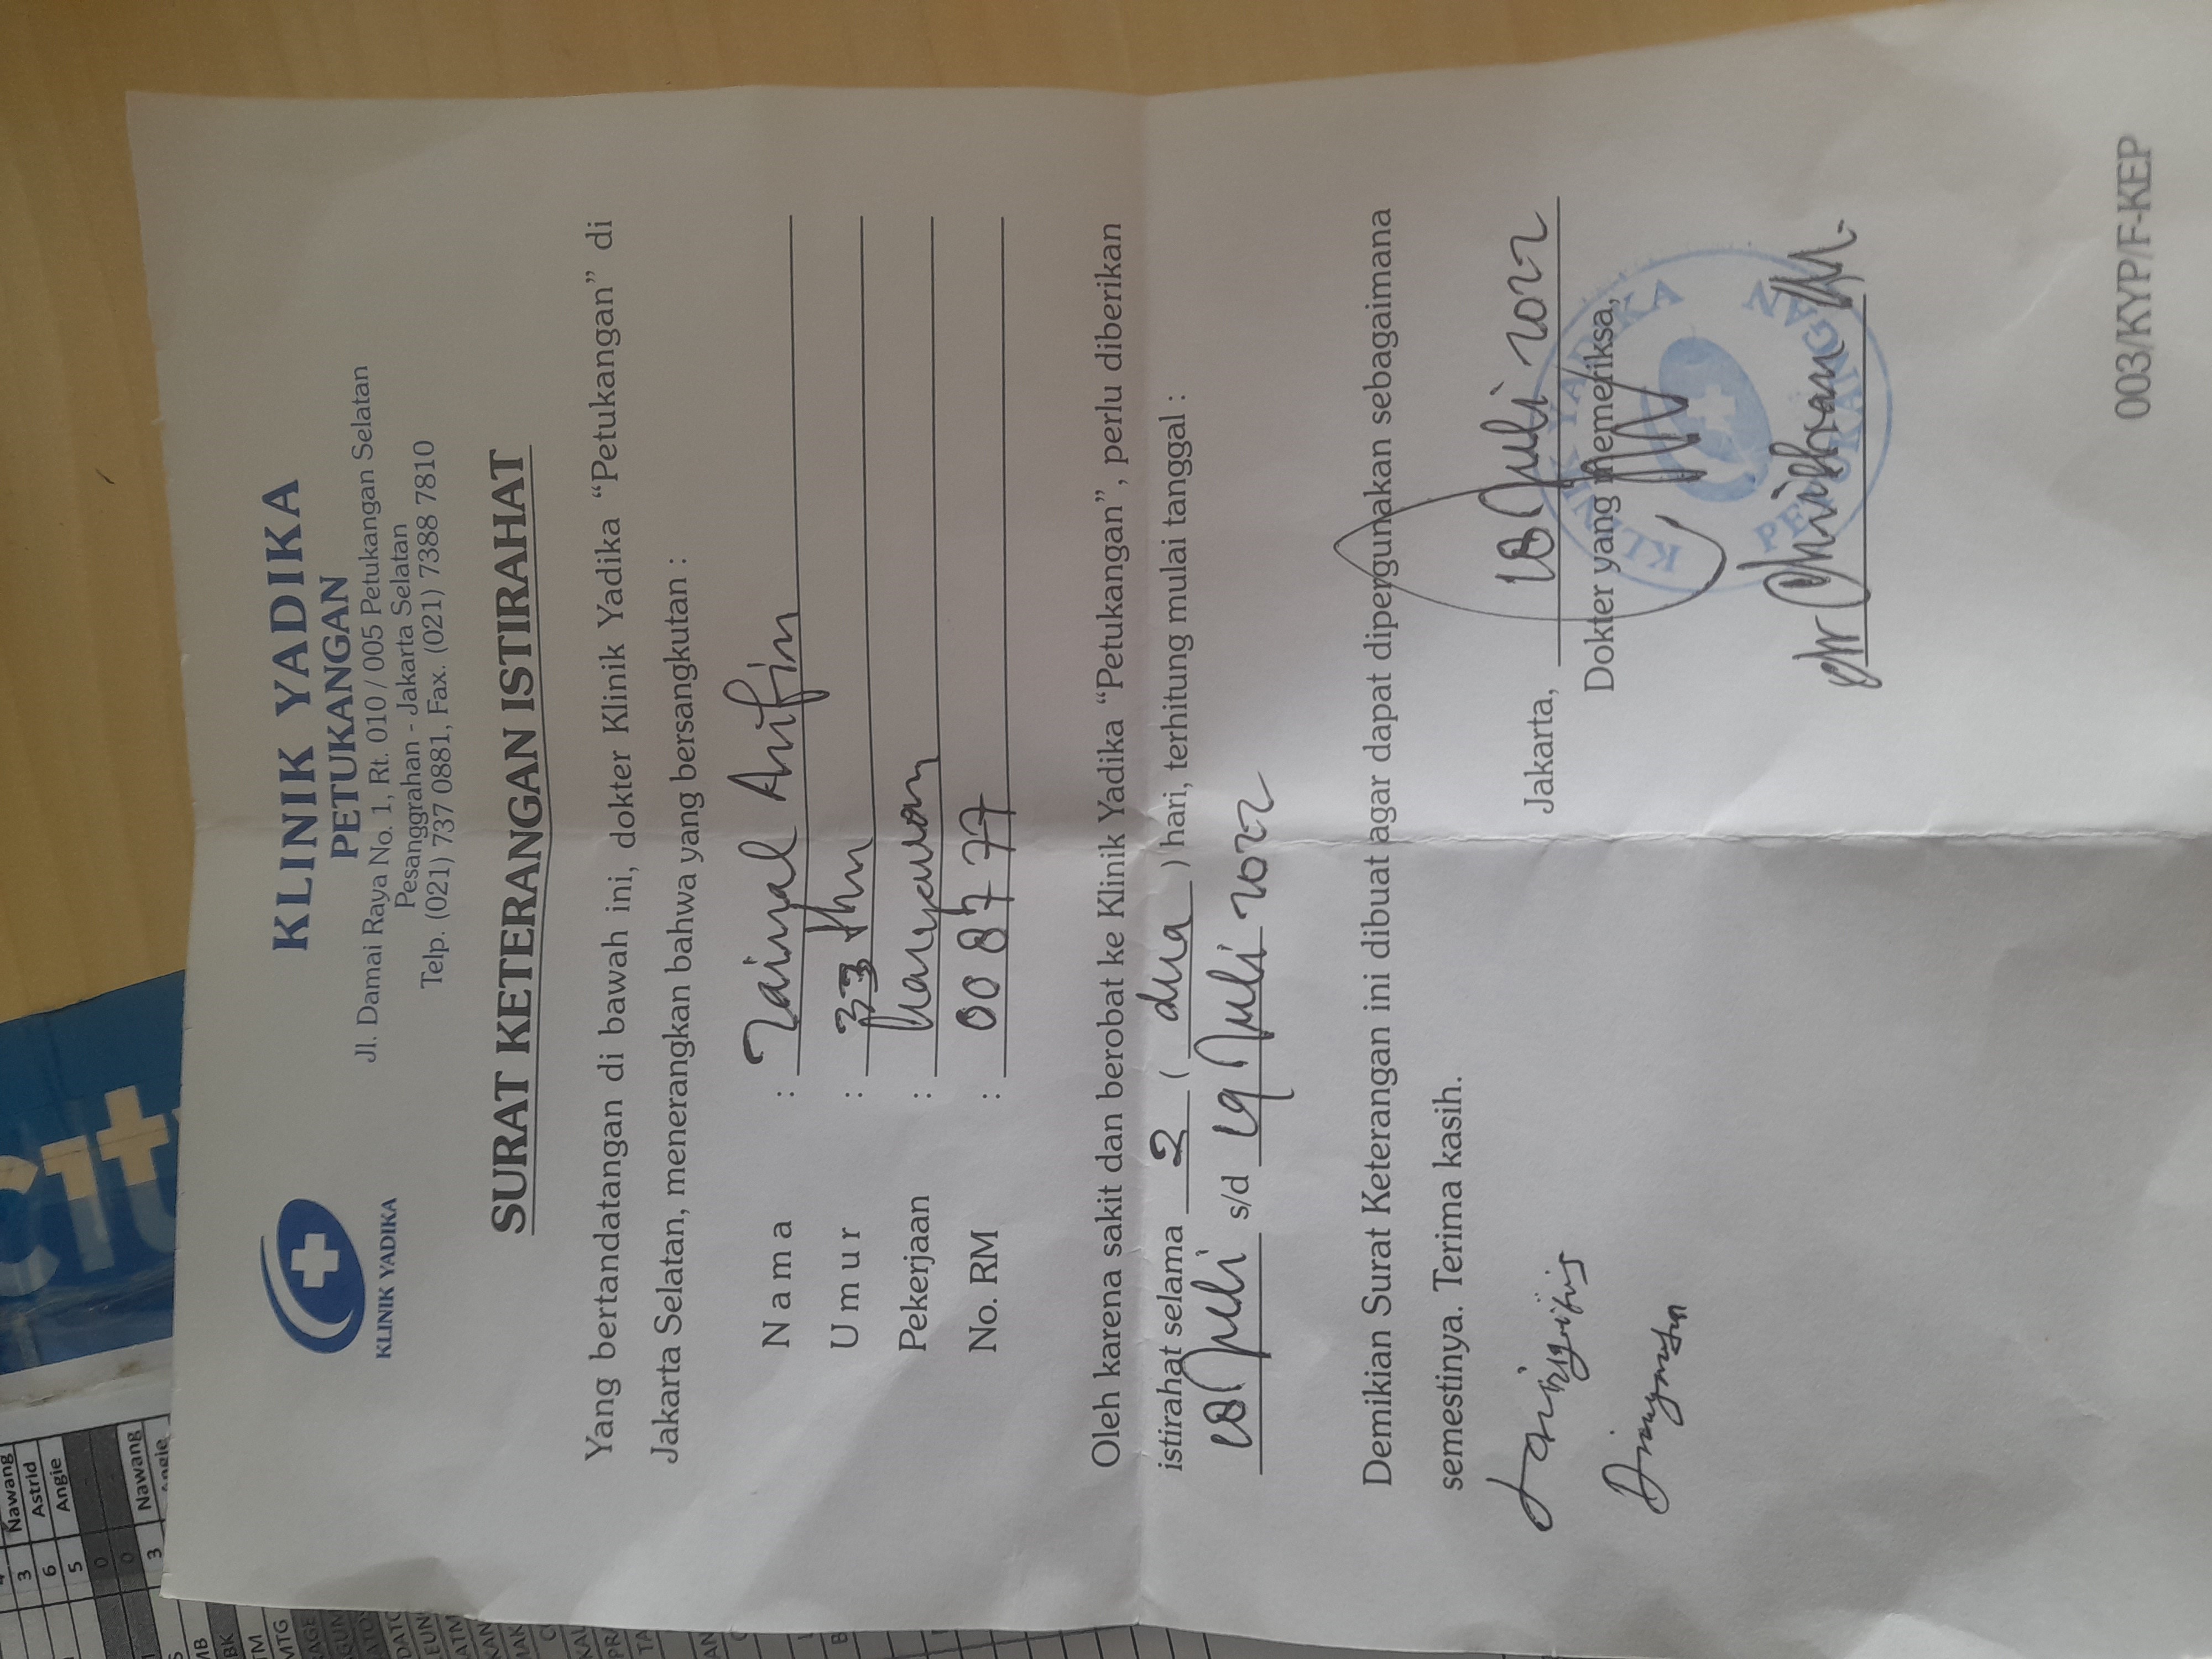 KLINIK YADIKA
PETUKANGAN
Jl. Damai Raya No. 1, Rt. 010 / 005 Petukangan Selatan
Pesanggrahan - Jakarta Selatan
Telp. (021) 737 0881, Fax. (021) 7388 7810
KLINIK YADIKA
SURAT KETERANGAN ISTIRAHAT
Yang bertandatangan di bawah ini, dokter Klinik Yadika “Petukangan” di
Jakarta Selatan, menerangkan bahwa yang bersangkutan :
N a m a : Zainal Arifin
U m u r : 33 thn
Pekerjaan : Karyawan
No. RM : 00 87 77
Oleh karena sakit dan berobat ke Klinik Yadika “Petukangan”, perlu diberikan
istirahat selama 2 ( dua ) hari, terhitung mulai tanggal :
18 Juli s/d 19 Juli 2022
Demikian Surat Keterangan ini dibuat agar dapat dipergunakan sebagaimana
semestinya. Terima kasih.
Jakarta, 18 Juli 2022
Dokter yang memeriksa,
KLINIK YADIKA
PETUKANGAN
dr
003/KYP/F-KEP
citi
Nawang
3 Astrid
6 Angie
5
0
0 Nawang
3 Angie